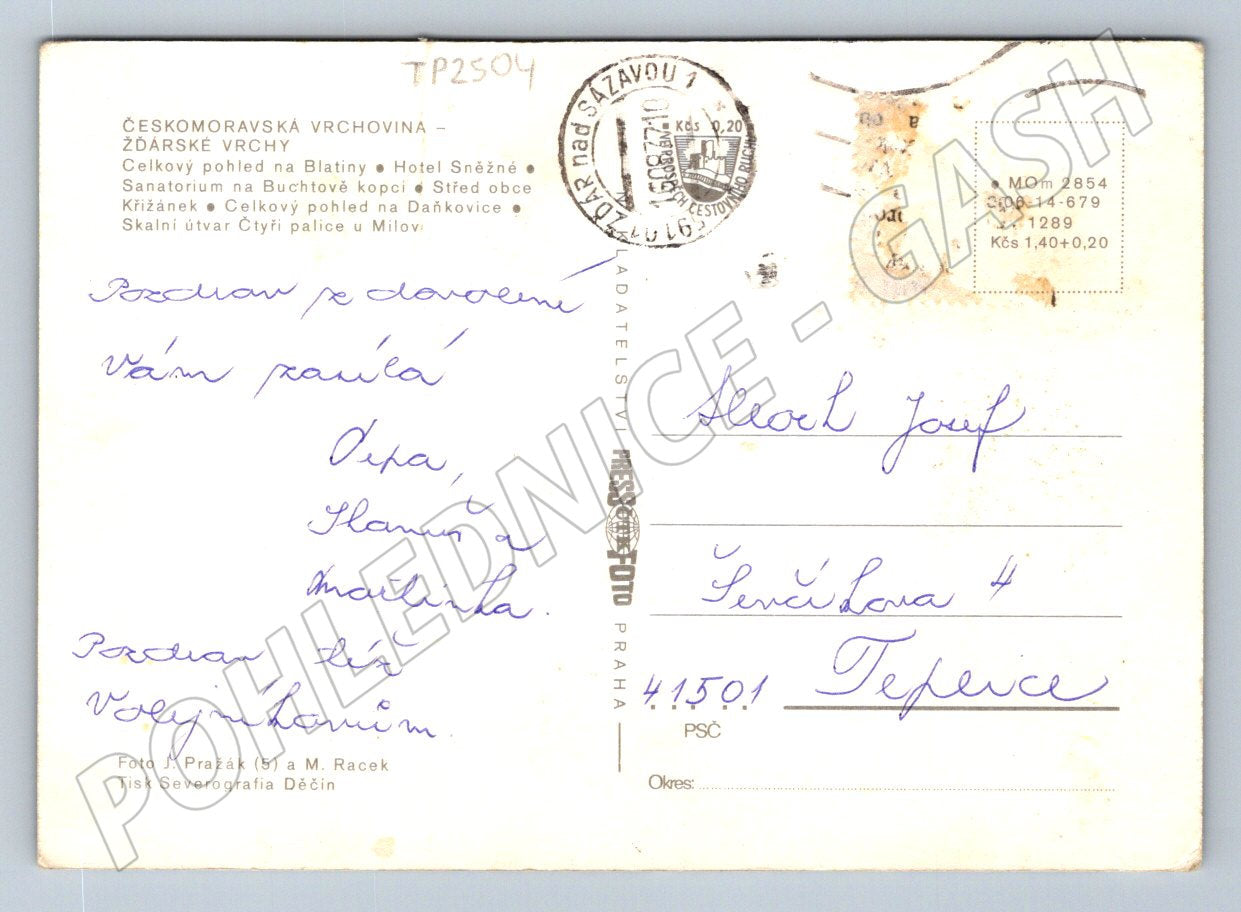 TP2504
ČESKOMORAVSKÁ VRCHOVINA –
ŽĎÁRSKÉ VRCHY
Celkový pohled na Blatiny ● Hotel Sněžné ●
Sanatorium na Buchtově kopci ● Střed obce
Křižánek ● Celkový pohled na Daňkovice ●
Skalní útvar Čtyři palice u Milov
Pozdrav z dovolené
Vám zasílá
Pepa,
Hanuš a
Martinka.
Pozdrav též
Volejníkovům.
Foto J. Pražák (5) a M. Racek
Tisk Severografia Děčín
LADATELSTVÍ PRESSFOTO PRAHA
ČTK
ŽĎÁR nad SÁZAVOU 1
591 01
Kčs 0,20
VE PROSPĚCH CESTOVNÍHO RUCHU
● MOm 2854
06-14-679
1289
Kčs 1,40+0,20
Josef
Ševčíkova 4
41501 Teplice
PSČ
Okres:
POHLEDNICE - GASH